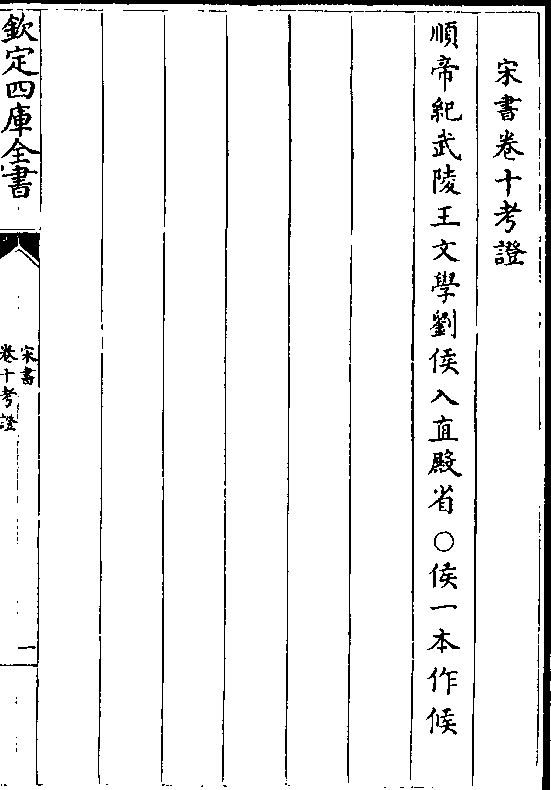 宋書卷十考證
順帝紀武陵王文學劉俟入直殿省○俟一本作候
欽定四庫全書
宋書
卷十考證
一